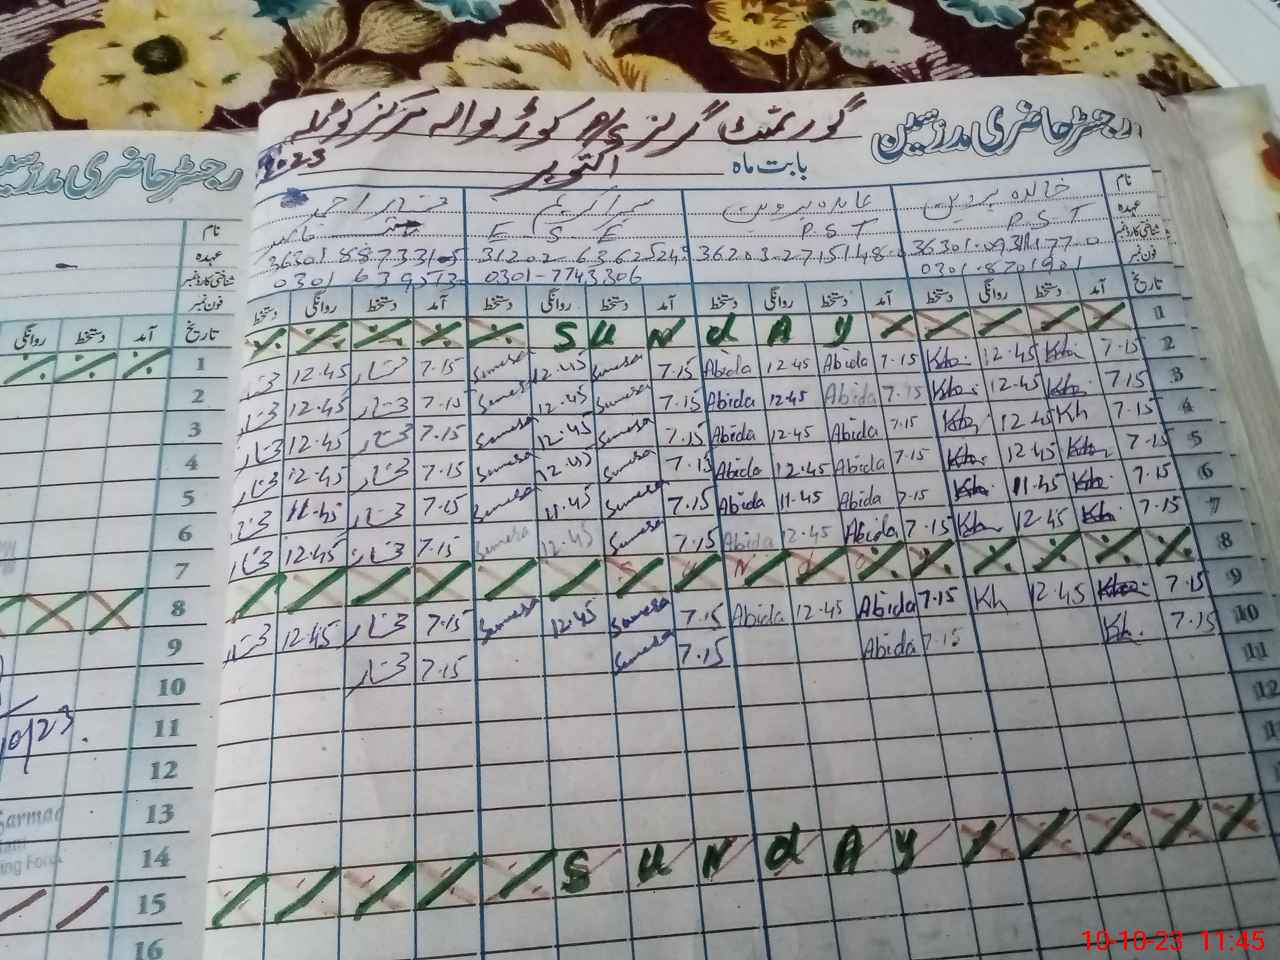 رجسٹر حاضری مدرسین گورنمنٹ گرلز P/S کوڑے والہ مرکز کوٹملہ
بابت ماہ اکتوبر 2023
نام خالدہ پروین عابدہ پروین
عہدہ P.S.T P.S.T E S E
شناختی کارڈ نمبر 36203-2715148-0 31202-6362524
فون نمبر 0301-8701901 0301-7743306
تاریخ آمد دستخط روانگی دستخط آمد دستخط روانگی دستخط آمد دستخط روانگی دستخط آمد دستخط روانگی دستخط
1 SUNdAy
2 7.15 Kh 12.45 Kh 7.15 Abida 12.45 Abida 7.15 Sumera 12.45 Sumera 7.15 مختار 12.45 مختار
3 7.15 Kh 12.45 Kh 7.15 Abida 12.45 Abida 7.15 Sumera 12.45 Sumera 7.15 مختار 12.45 مختار
4 7.15 Kh 12.45 Kh 7.15 Abida 12.45 Abida 7.15 Sumera 12.45 Sumera 7.15 مختار 12.45 مختار
5 7.15 Kh 12.45 Kh 7.15 Abida 12.45 Abida 7.15 Sumera 12.45 Sumera 7.15 مختار 12.45 مختار
6 7.15 Kh 11.45 Kh 7.15 Abida 11.45 Abida 7.15 Sumera 11.45 Sumera 7.15 مختار 11.45 مختار
7 7.15 Kh 12.45 Kh 7.15 Abida 12.45 Abida 7.15 Sumera 12.45 Sumera 7.15 مختار 12.45 مختار
8
9 7.15 Kh 12.45 Kh 7.15 Abida 12.45 Abida 7.15 Sumera 12.45 Sumera 7.15 مختار 12.45 مختار
10 7.15 Kh 7.15 Abida 7.15 Sumera 7.15 مختار
11
12
SUNdAy
رجسٹر حاضری مدرسین
نام
عہدہ
شناختی کارڈ نمبر
فون نمبر
تاریخ آمد دستخط روانگی
1
2
3
4
5
6
7
8
9
10
11
12
13
14
15
16
10/23
Sarmad
10-10-23 11:45